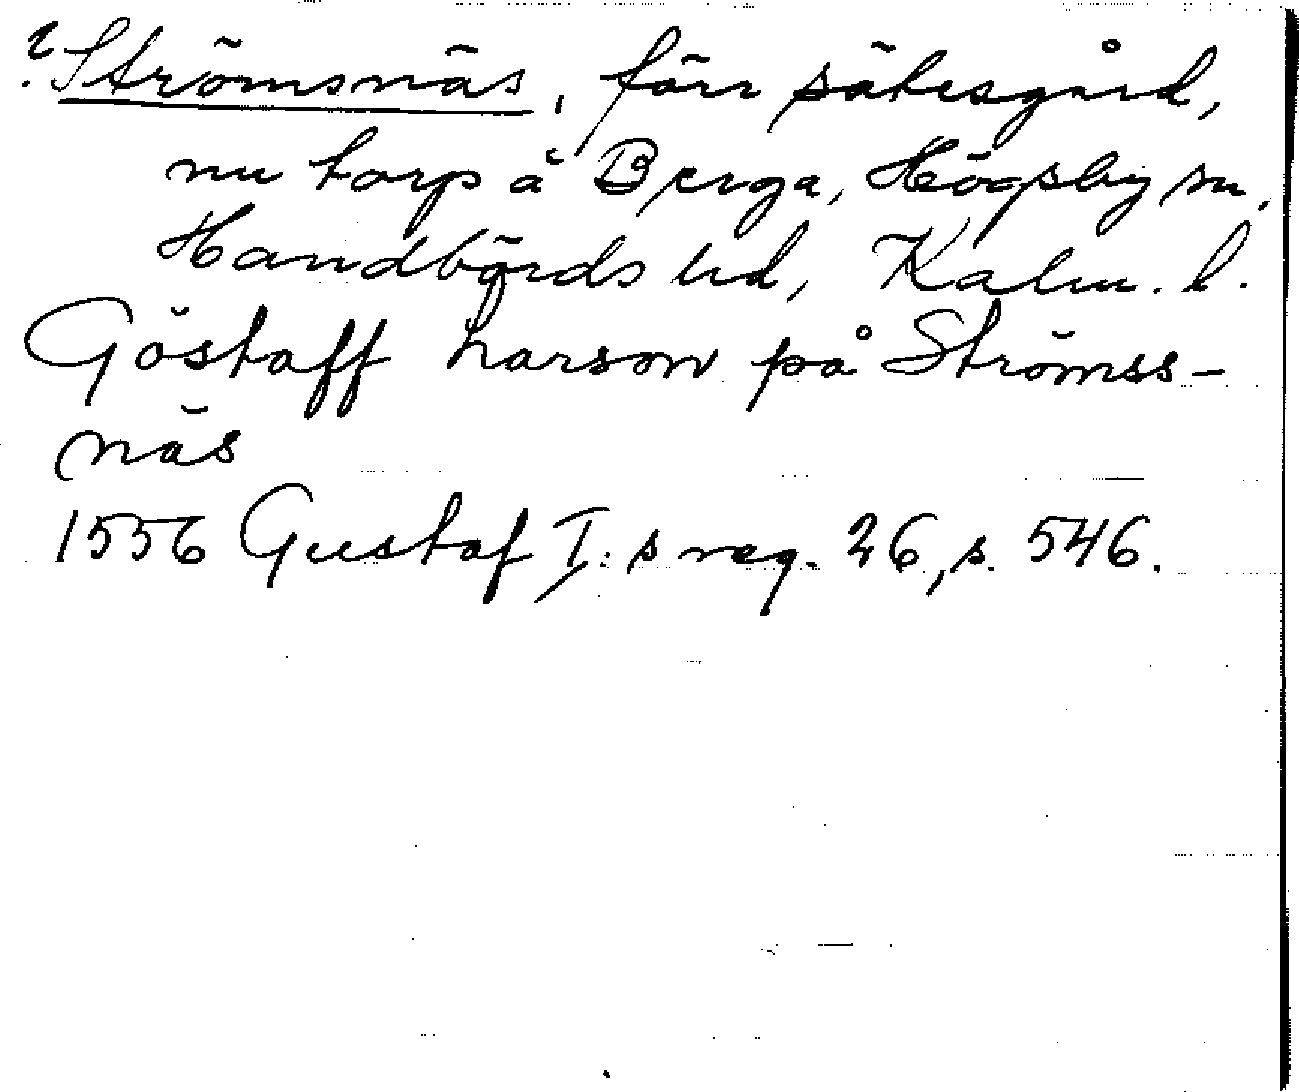 ? Strömsnäs, förr sätesgård,
nu torp å Berga, Högsby sn,
Handbörds hd, Kalm. l.
Göstaff Larson på Strömss-
näs
1556 Gustaf I:s reg. 26, s. 546.